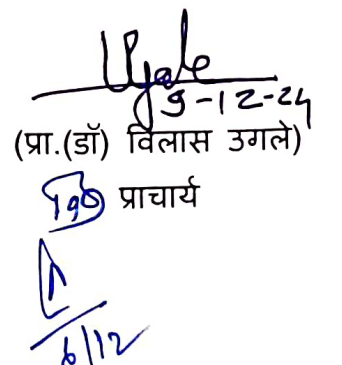 Ugale
9-12-24
(प्रा.(डॉ) विलास उगले)
प्राचार्य
6/12